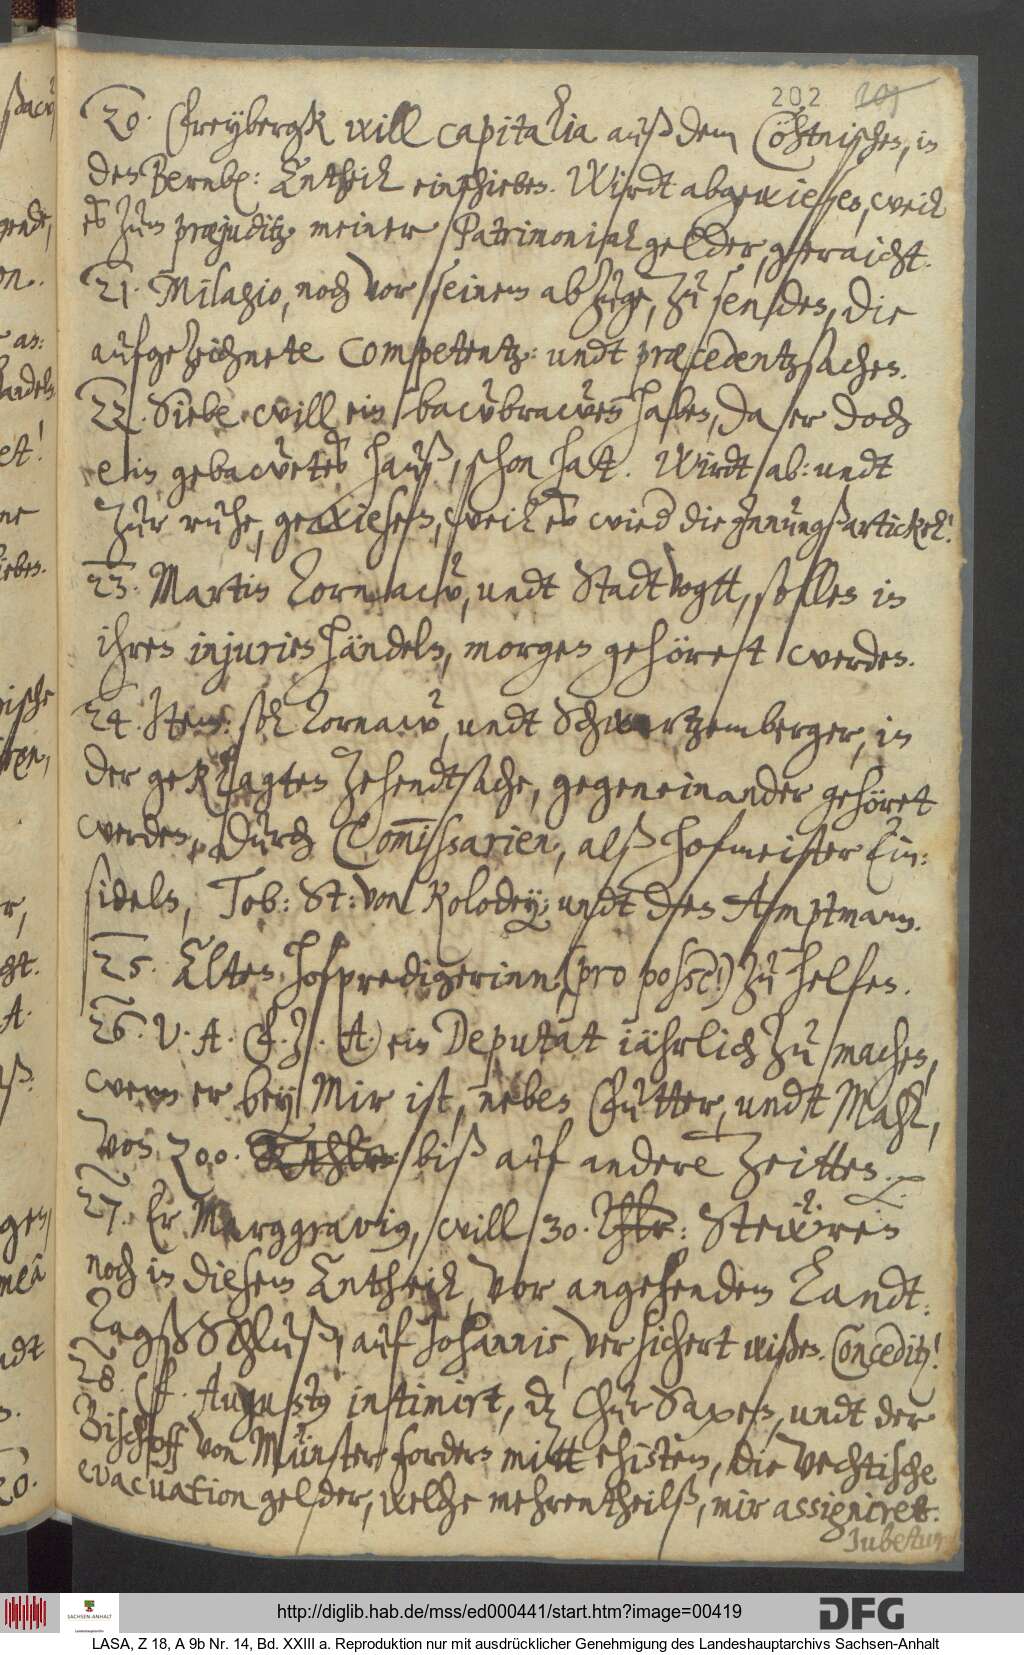 202 201
20. Freybergk will capitalia auß dem Cöhtnischen, in
den Bernb: Antheil einschieben. Wirdt abgewiesen, weil
es zum præjuditz meiner Patrimonial gelder, geraicht.
21. Milagio, noch vor seinem abzuge, zu senden, die
aufgezeichnete Competentz: undt præcedentzsachen.
22. Siebe will ein bawbrawen haben, da er doch
ein gebawetes hauß, schon hatt. Wirdt ab: undt
zur ruhe, gewiesen, weil es wied die Innungßartickel!
23. Martin Zornaw, undt StadtVogtt, sollen in
ihren injurien händeln, morgen gehöret werden.
24. Item: soll Zornaw, undt Schwartzemberger, in
der geklagten Zehendtsache, gegeneinander gehöret
werden, durch Commissarien, alß hofmeister Ein:
sideln, Tob: St: von Kolodey; undt den Amptmann.
25. Alten hofpredigerinn, (pro posse!) zu helfen.
26. V. A. (F. J. A.) ein Deputat iährlich zu machen,
wenn er bey Mir ist, neben Futter, undt Mahl,
von 200. Rthlr biß auf andere Zeitten.
27. Er Marggravius, will 30. Thlr: Stewren
noch in diesem Antheil, vor angehendem Landt:
Tagß Schluß, auf Johannis, versichert wißen. Conceditur!
28. F. Augustus intimirt, daß Chur Saxen, undt der
Bischoff von Münster fordern mitt ehistem, die Vechtische
evacuation gelder, welche mehrentheilß, mir assigniret.
Jubetur
http://diglib.hab.de/mss/ed000441/start.htm?image=00419
SACHSEN-ANHALT
DFG
LASA, Z 18, A 9b Nr. 14, Bd. XXIII a. Reproduktion nur mit ausdrücklicher Genehmigung des Landeshauptarchivs Sachsen-Anhalt